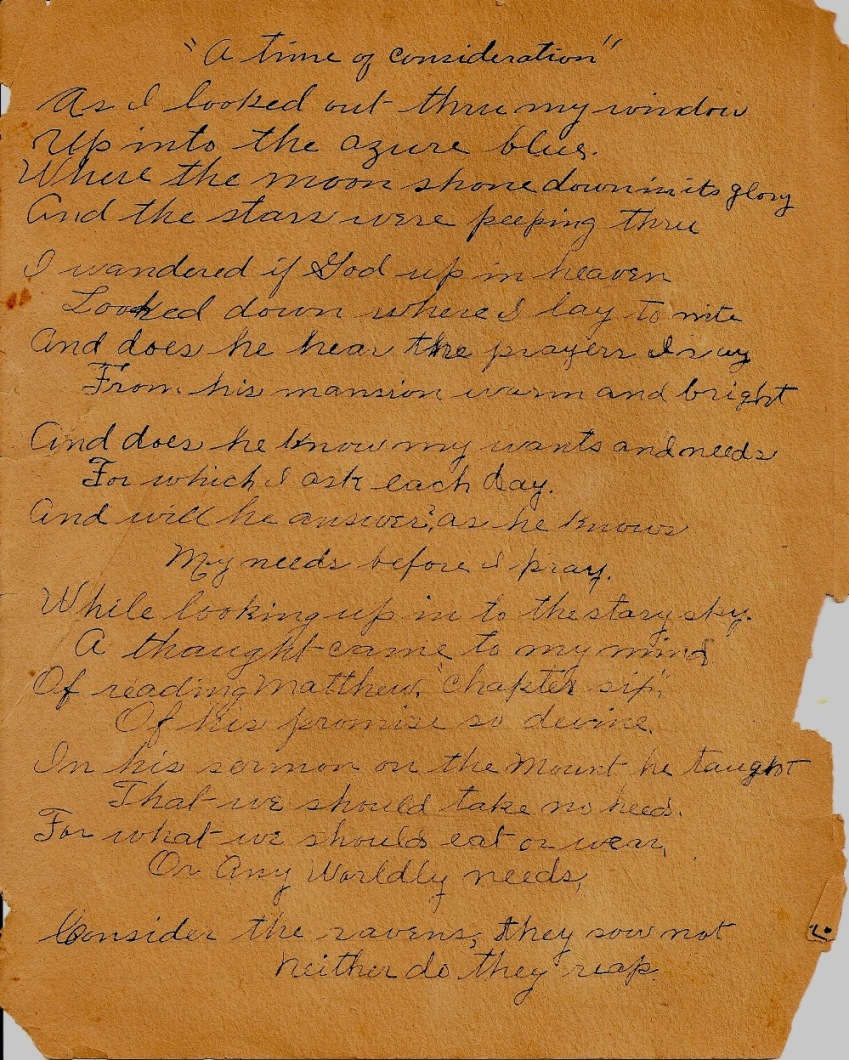 "A time of consideration"
As I looked out thru my window
Up into the azure blue.
Where the moon shone down in its glory
And the stars were peeping thru
I wandered if God up in heaven
Looked down where I lay to nite
And does he hear the prayers I say
From his mansion warm and bright
And does he know my wants and needs
For which I ask each day.
And will he answer, as he knows
My needs before I pray.
While looking up in to the stary sky.
A thought came to my mind
Of reading Matthew, "chapter six",
Of his promise so devine.
In his sermon on the Mount he taught
That we should take no heed.
For what we should eat or wear,
Or Any Worldly needs,
Consider the ravens, they sow not
Neither do they reap.